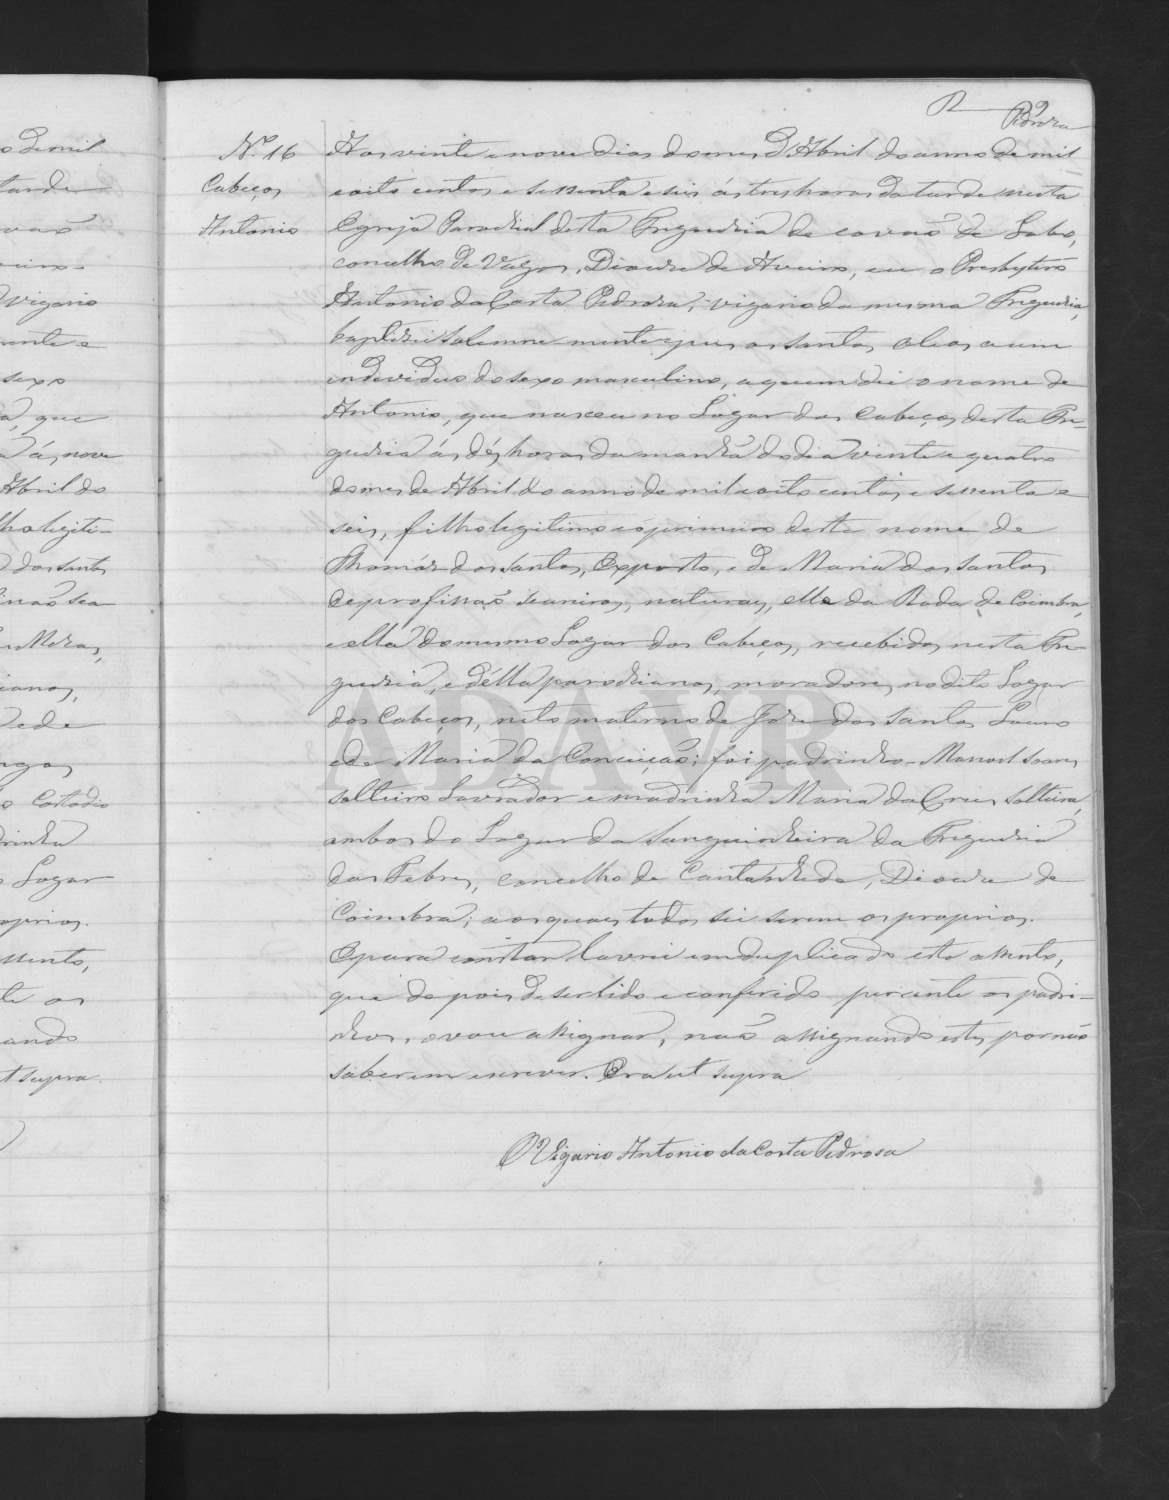 9
Pedroza
Nº 16
Cabeços
Antonio
Aos vinte e nove dias do mes D'Abril do anno de mil
e oito centos e sessenta e seis ás tres horas da tarde nesta
Egreja Parochial desta Freguezia de Covaõ de Lobo,
concelho de Vagos, Diocese de Aveiro, eu o Presbytero
Antonio da Costa Pedroza, vigario da mesma Freguezia,
baptizei solemnemente e pus os santos oleos a um
individuo do sexo masculino, a quem dei o nome de
Antonio, que nasceu no Lugar dos Cabeços desta Fre-
guezia ás déz horas da manhã do dia vinte e quatro
do mes de Abril do anno de mil e oito centos e sessenta e
seis, filho legitimo e o primeiro deste nome de
Thomáz dos Santos, Exposto, e de Maria dos Santos
de profissaõ naturaes, elle da Roda de Coimbra,
e ella do mesmo Lugar dos Cabeços, recebidos nesta Fre-
guezia, e d'ella parochianos, moradores no dito Lugar
dos Cabeços, neto materno de Joze dos Santos Louro
e de Maria da Conceiçaõ; foi padrinho Manoel Soares
solteiro Lavrador e madrinha Maria da Cruz solteira,
ambos do Lugar da Sanguinheira da Freguezia
das Febres, concelho de Cantanhede, Diocese de
Coimbra; a os quaes todos sei serem os proprios.
E para constar lavrei em duplicado este assento,
que depois de ser lido e conferido perante os padri-
nhos, o vou assignar, naõ assignando estes por não
saberem escrever. Era ut supra
O Vigario Antonio da Costa Pedrosa
o de mil
tarde
Vigario
sexo
a, que
á, nove
Abril do
lho legiti-
dos santos
ede
Custodio
drinha
Lugar
oprios.
ssento,
te os
ando
t supra.
ADAVR